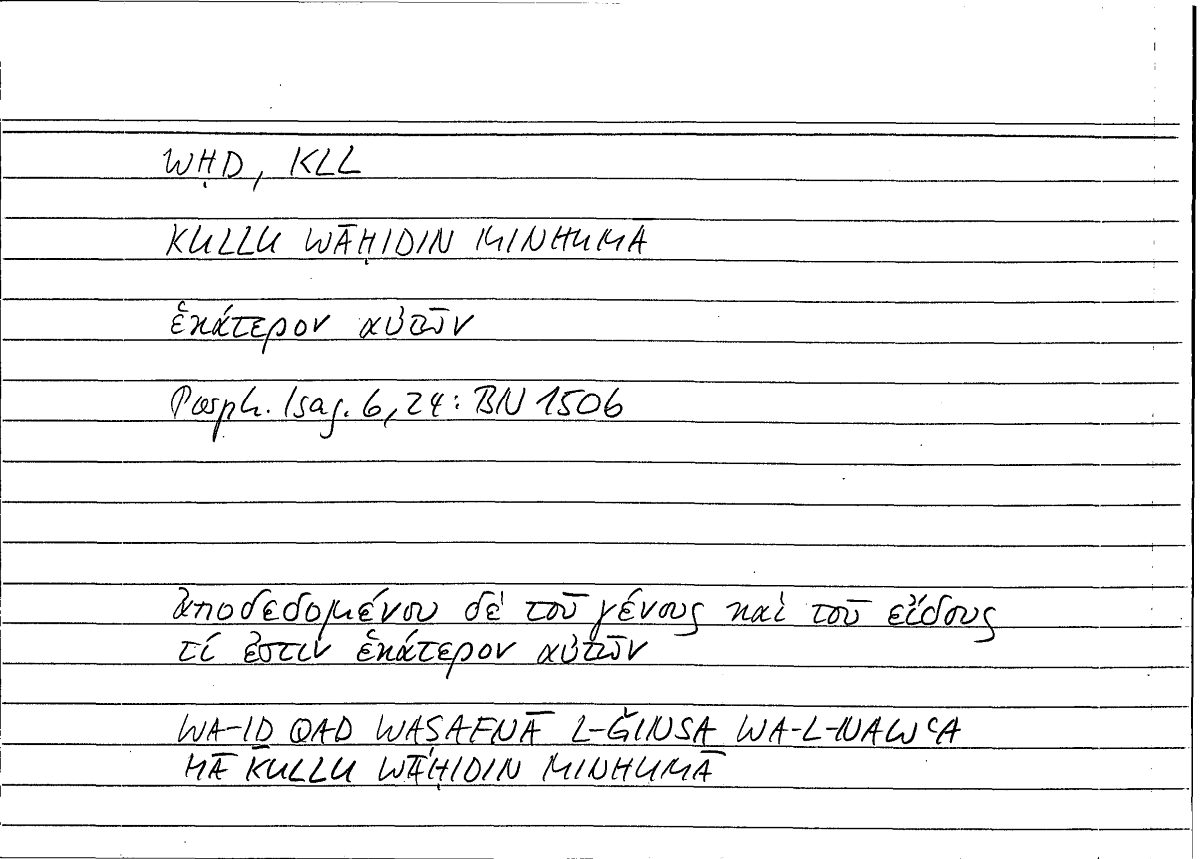 WḤD, KLL
KULLU WĀḤIDIN MINHUMĀ
ἑκάτερον αὐτῶν
Porph. Isag. 6,24: BN 1506
ἀποδεδομένου δὲ τοῦ γένους καὶ τοῦ εἴδους
τί ἐστιν ἑκάτερον αὐτῶν
WA-ID QAD WASAFNĀ L-ĞINSA WA-L-NAWʿA
MĀ KULLU WĀḤIDIN MINHUMĀ